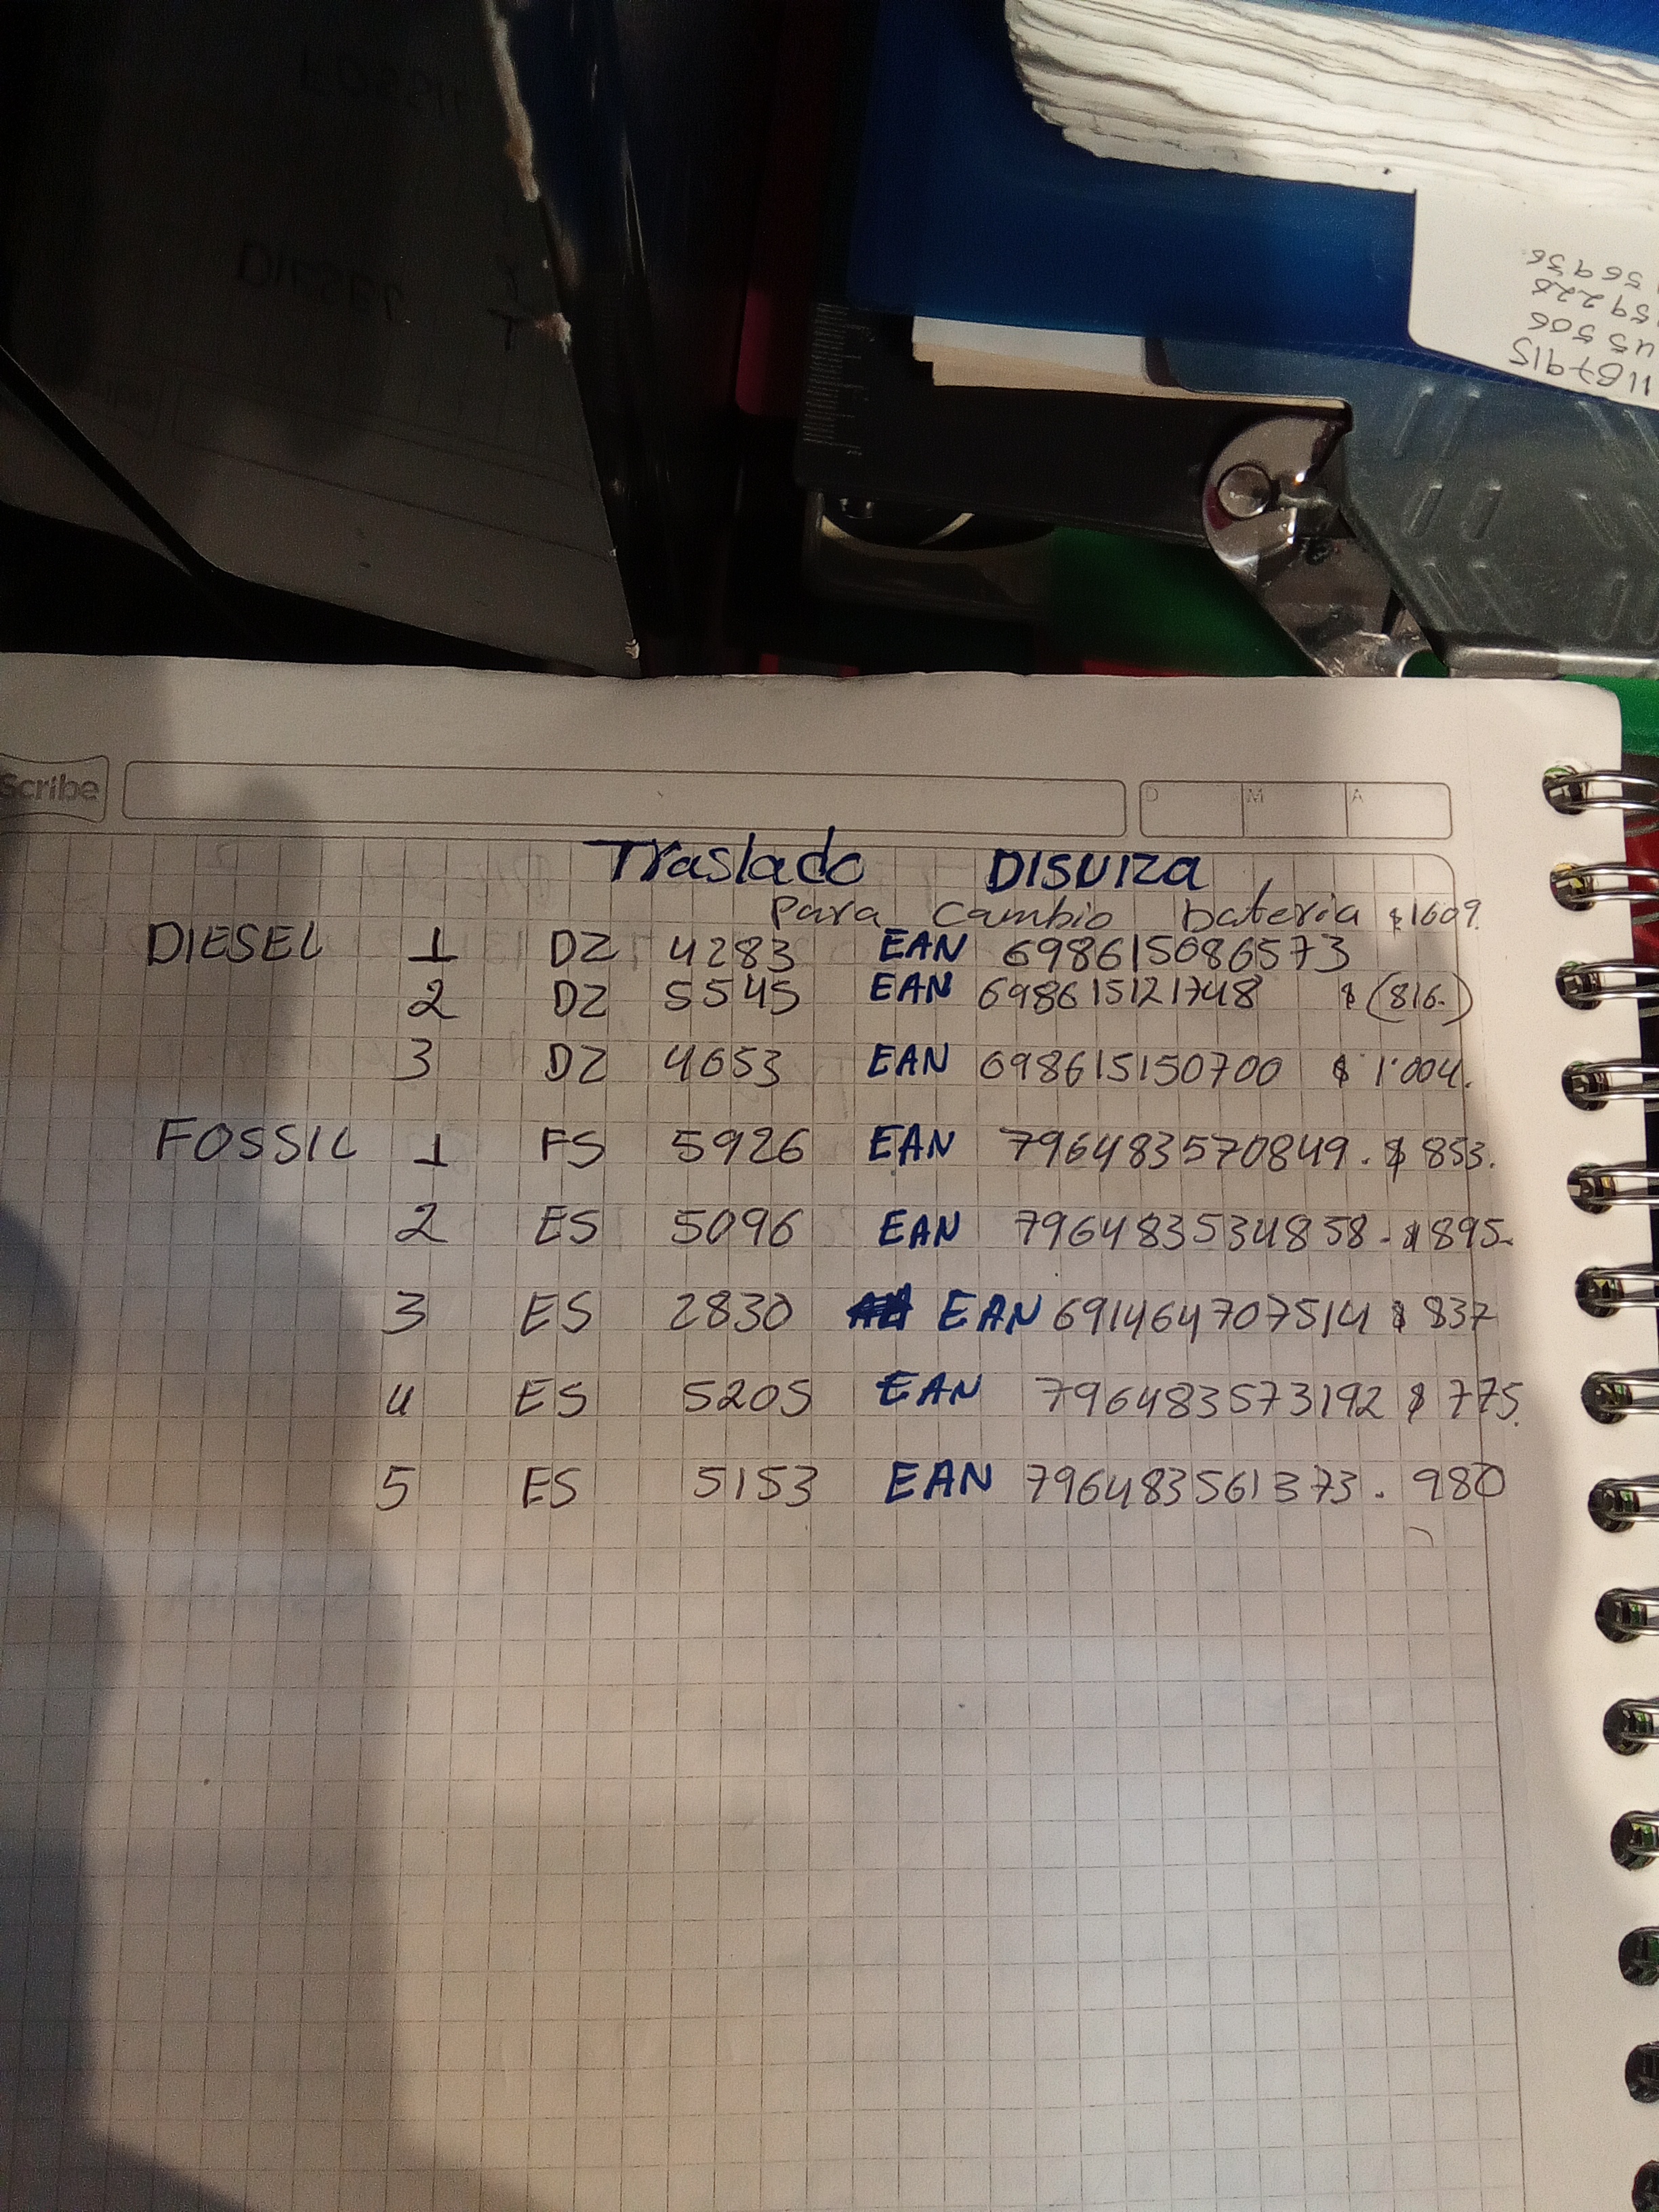 11B7915
45 506
59 226
56936
Scribe
D M A
Traslado DISUIZA
Para Cambio bateria $1609.
DIESEL 1 DZ 4283 EAN 698615086573
2 DZ 5545 EAN 698615121748 $ (816.)
3 DZ 4653 EAN 698615150700 $ 1'004.
FOSSIL 1 FS 5926 EAN 796483570849. $ 853.
2 ES 5096 EAN 796483534858 - $895-
3 ES 2830 EAN 691464707514 $ 837
4 ES 5205 EAN 796483573192 $ 775.
5 ES 5153 EAN 796483561373. 980